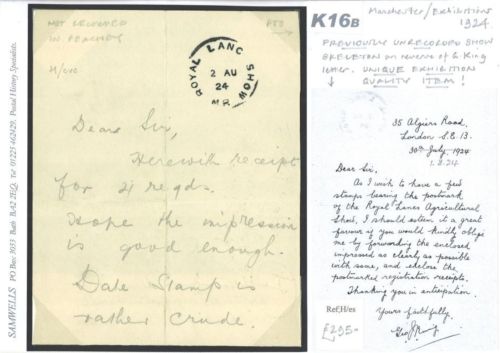 SAMWELLS PO Box: 1033 Bath BA2 7EG. Tel 01225 462429. Postal History Specialists.
NOT RECORDED
IN PEACHEY
M/crc
ROYAL LANC SHOW
2 AU
24
MR
Dear Sir,
Herewith receipt
for 21 regd.
Hope the impression
is good enough.
Date Stamp is
rather crude.
K16B
Manchester/Exhibitions
1924
PREVIOUSLY UNRECORDED SHOW
SKELETON on reverse of G. King
letter. UNIQUE EXHIBITION
QUALITY ITEM!
35 Algiers Road,
London S.E. 13.
30th July 1924
Dear Sir,
As I wish to have a few
stamps bearing the postmark
of the Royal Lancs Agricultural
Show, I should esteem it a great
favour if you would kindly oblige
me by forwarding the enclosed
impressed as clearly as possible
with same, and enclose the
postmarked registration receipts.
Thanking you in anticipation.
Yours faithfully,
Geo King
Ref;H/es
£295-